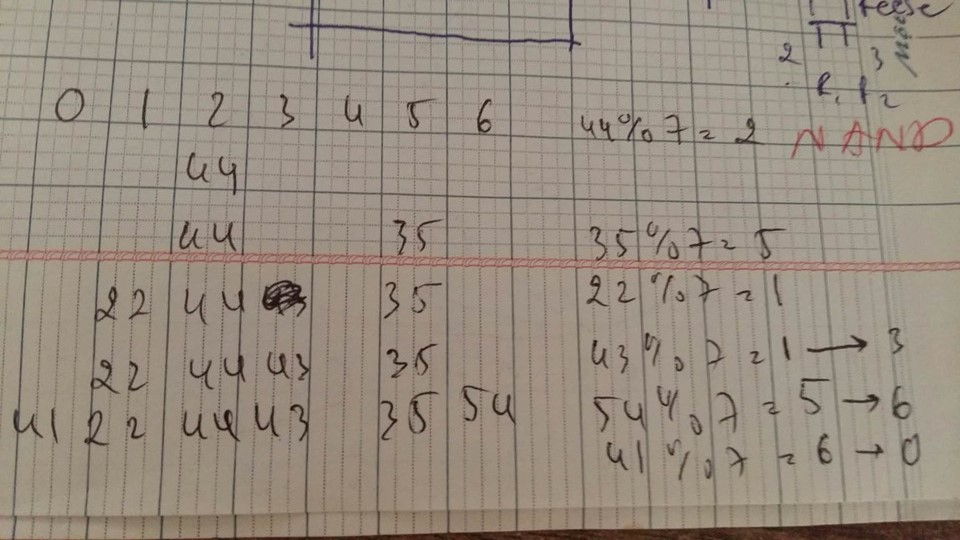 Reese
2 3
R₁ R₂
0 1 2 3 4 5 6 44%7=2 NAND
44
44 35 35%7=5
22 44 35 22%7=1
22 44 43 35 43%7=1→3
41 22 44 43 35 54 54%7=5→6
41%7=6→0